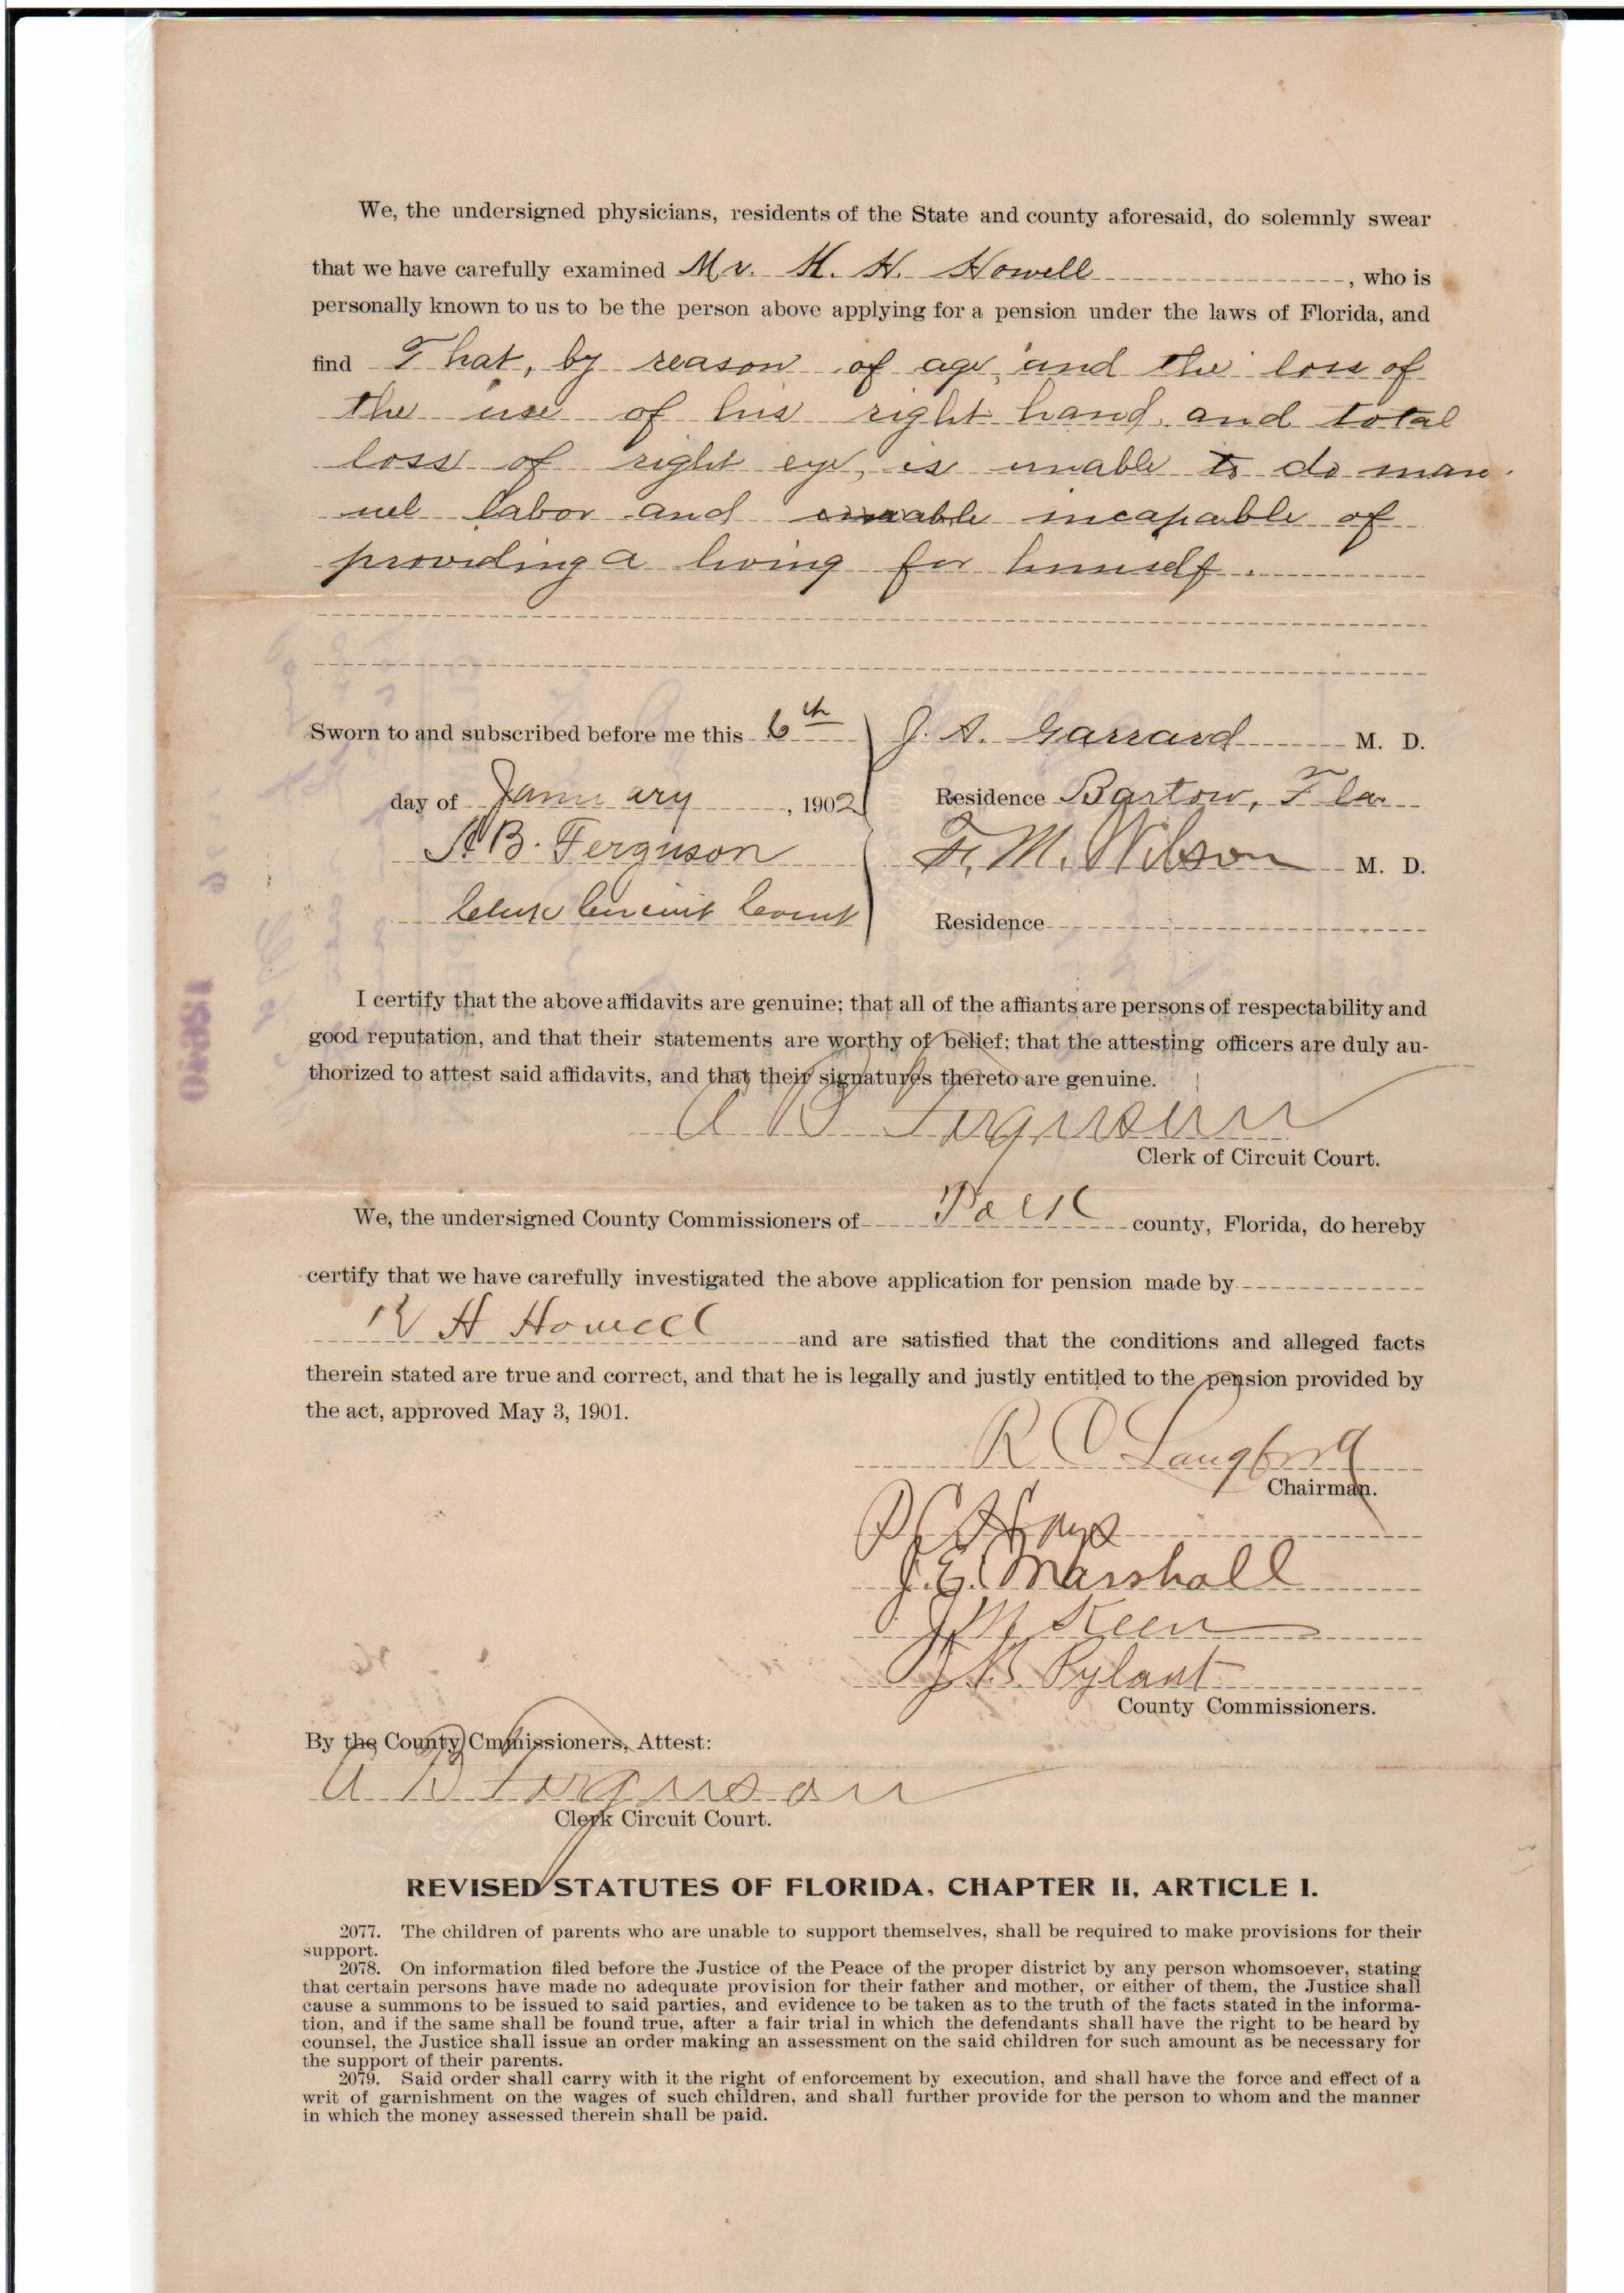 We, the undersigned physicians, residents of the State and county aforesaid, do solemnly swear
that we have carefully examined Mr. H. H. Howell, who is
personally known to us to be the person above applying for a pension under the laws of Florida, and
find That, by reason of age, and the loss of
the use of his right hand, and total
loss of right eye, is unable to do man-
uel labor and unable incapable of
providing a living for himself.
Sworn to and subscribed before me this 6th J. A. Garrard M. D.
day of January, 1902 Residence Bartow, Fla.
A B. Ferguson F. M. Wilson M. D.
Clerk Circuit Court Residence
I certify that the above affidavits are genuine; that all of the affiants are persons of respectability and
good reputation, and that their statements are worthy of belief; that the attesting officers are duly au-
thorized to attest said affidavits, and that their signatures thereto are genuine.
A B Ferguson
Clerk of Circuit Court.
We, the undersigned County Commissioners of Polk county, Florida, do hereby
certify that we have carefully investigated the above application for pension made by
H Howell and are satisfied that the conditions and alleged facts
therein stated are true and correct, and that he is legally and justly entitled to the pension provided by
the act, approved May 3, 1901.
R C Langford
Chairman.
J. E. Marshall
J M Keen
B. Pylant
County Commissioners.
By the County Cmmissioners, Attest:
A B Ferguson
Clerk Circuit Court.
REVISED STATUTES OF FLORIDA, CHAPTER II, ARTICLE I.
2077. The children of parents who are unable to support themselves, shall be required to make provisions for their
support.
2078. On information filed before the Justice of the Peace of the proper district by any person whomsoever, stating
that certain persons have made no adequate provision for their father and mother, or either of them, the Justice shall
cause a summons to be issued to said parties, and evidence to be taken as to the truth of the facts stated in the informa-
tion, and if the same shall be found true, after a fair trial in which the defendants shall have the right to be heard by
counsel, the Justice shall issue an order making an assessment on the said children for such amount as be necessary for
the support of their parents.
2079. Said order shall carry with it the right of enforcement by execution, and shall have the force and effect of a
writ of garnishment on the wages of such children, and shall further provide for the person to whom and the manner
in which the money assessed therein shall be paid.